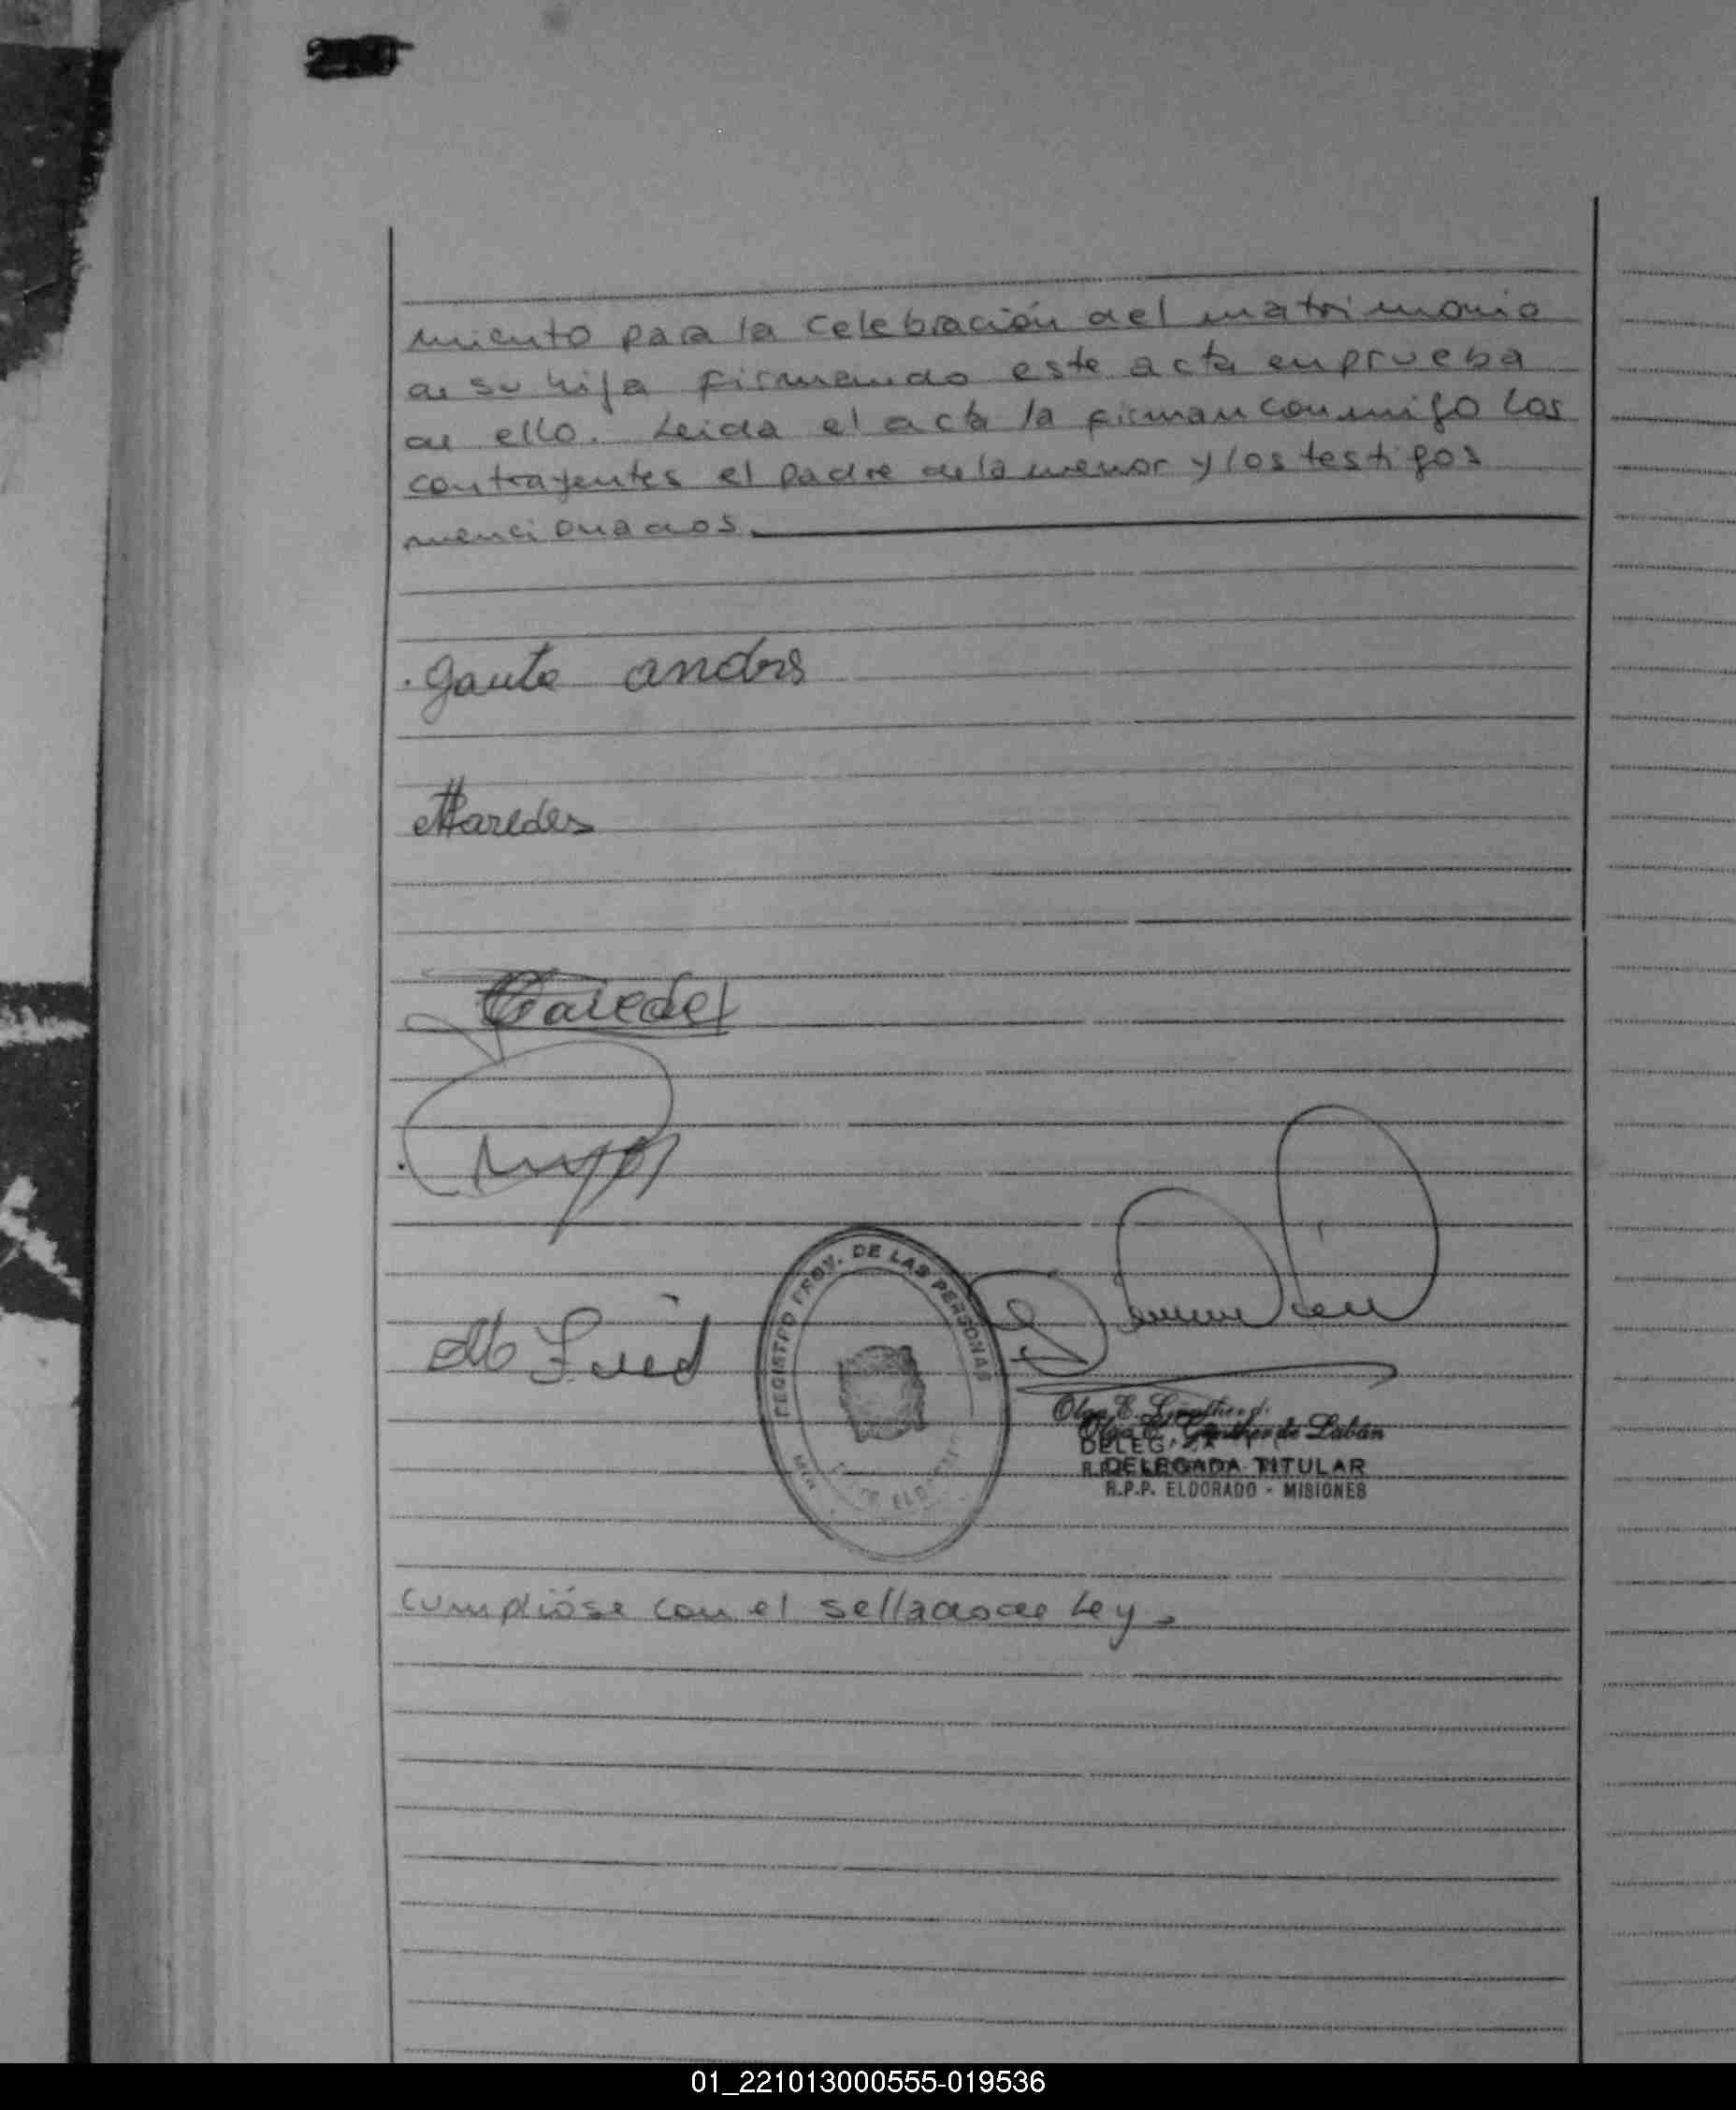 miento para la celebración del matrimonio
de su hija firmando este acta en prueba
de ello. Leida el acta la firman conmigo los
contrayentes el padre de la menor y los testigos
mencionados.
Gauto andrs
Paredes
Paredes
REGISTRO PROV. DE LAS PERSONAS
Olga E. Günther de Labán
DELEGADA TITULAR
R.P.P. ELDORADO - MISIONES
cumplióse con el sellado de Ley.
01_221013000555-019536